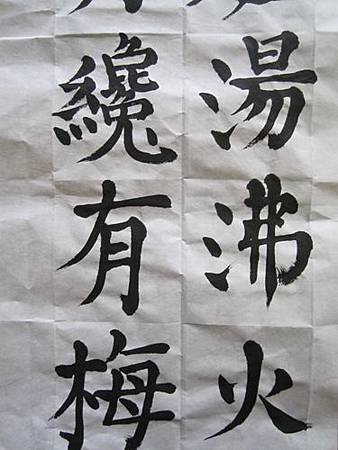 湯沸火
纔有梅